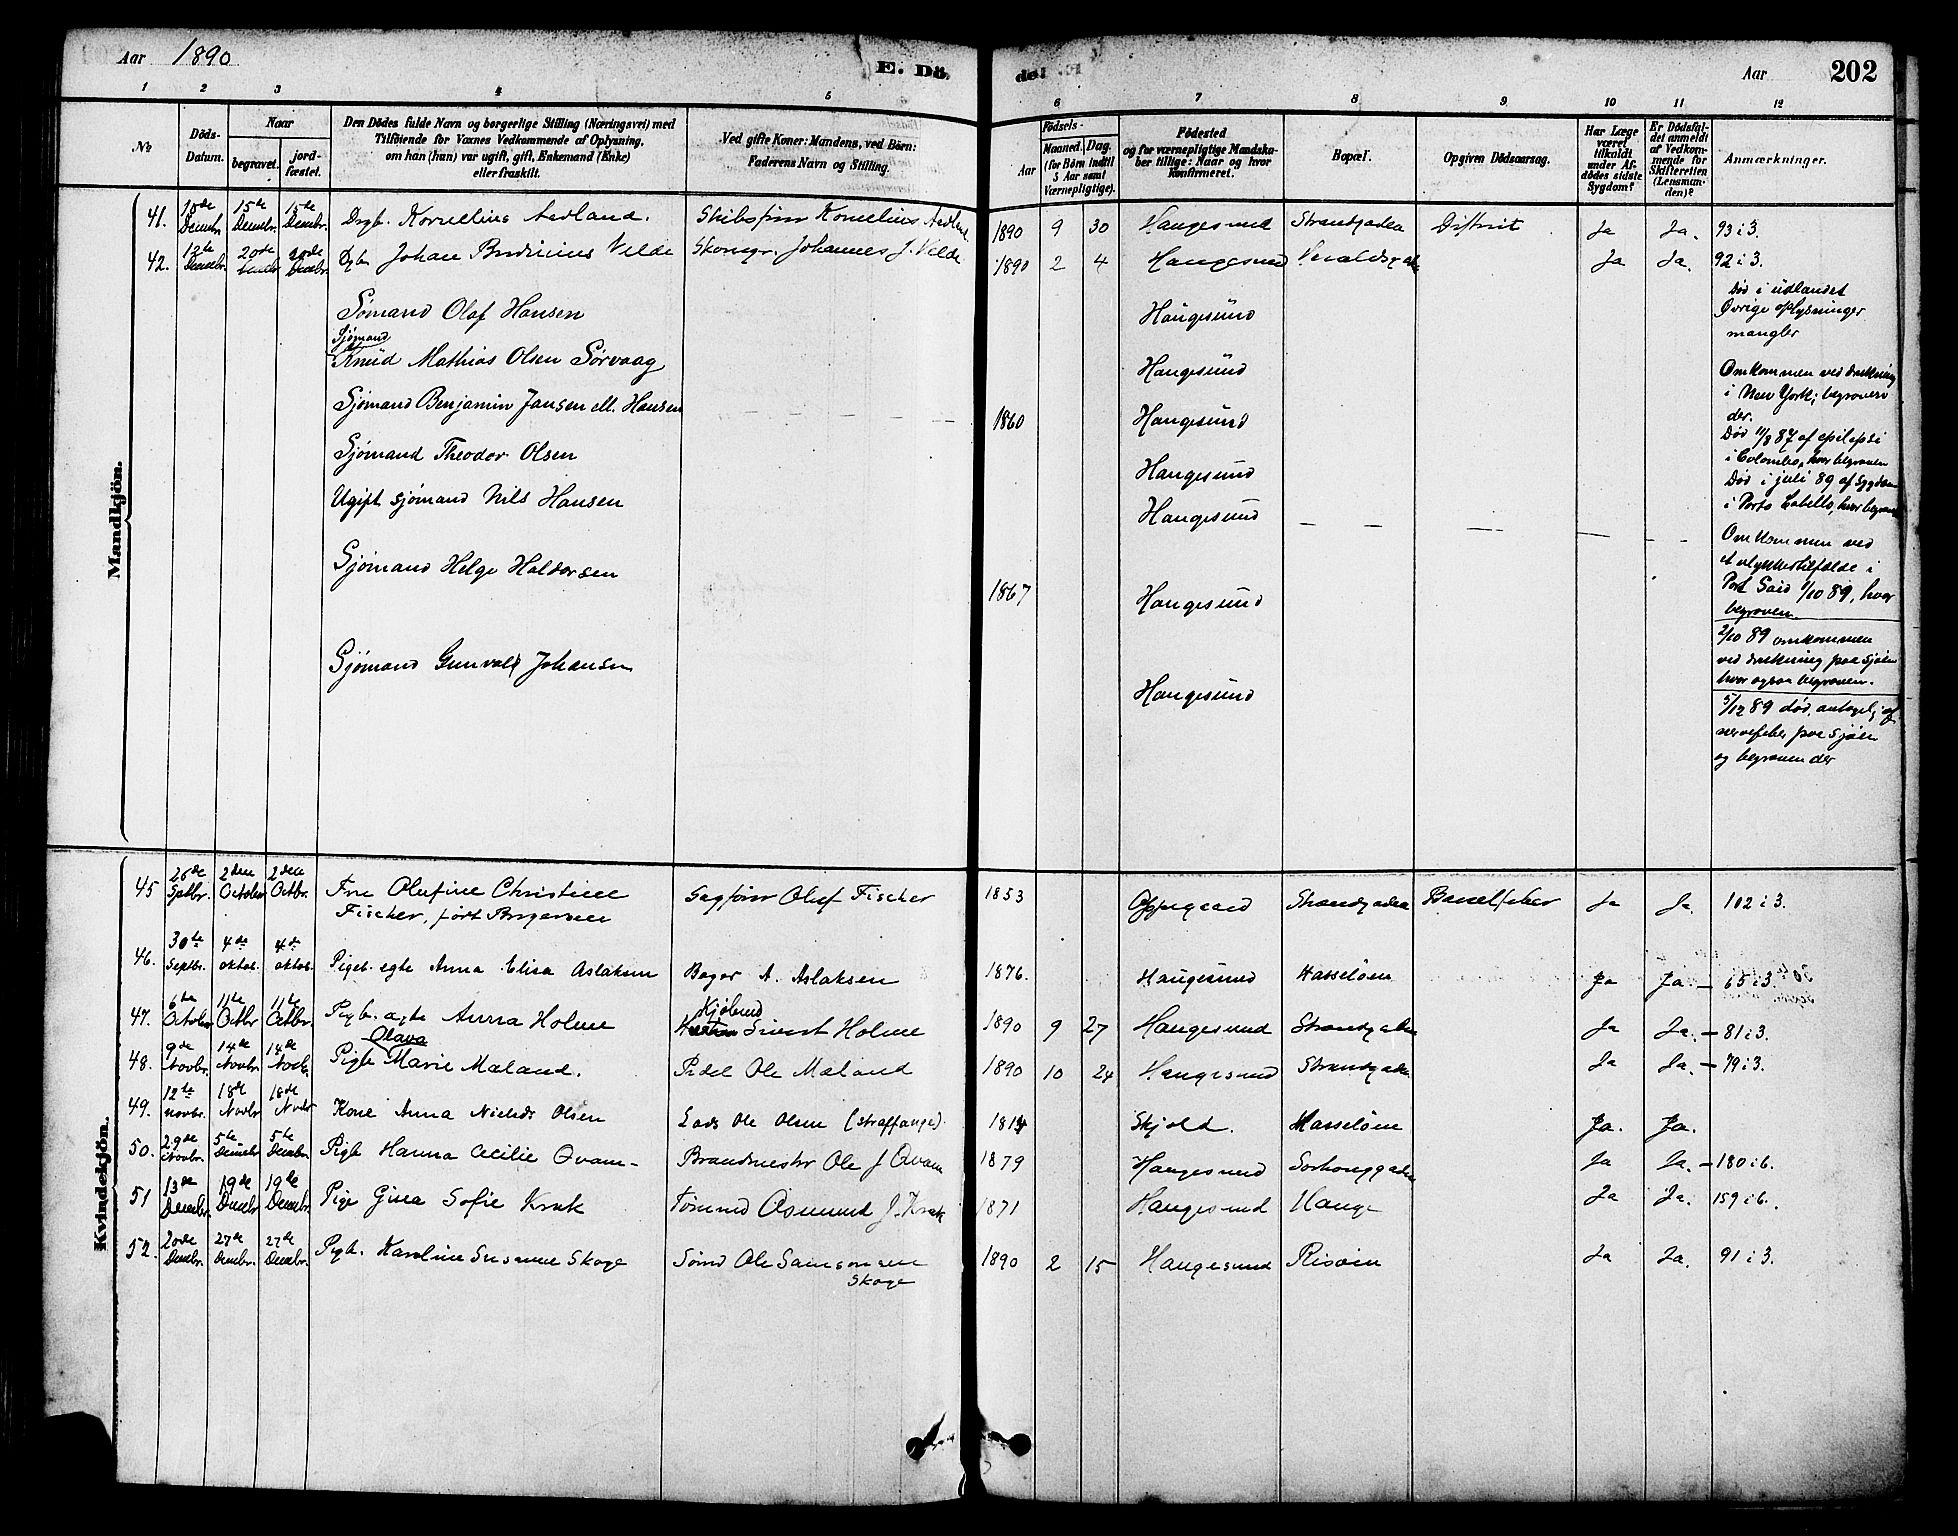 Aar 1890
E. Dö-
del E.
Aar 202
1 2 3 4 5 6 7 8 9 10 11 12
No
Döds-Datum.
Naar
begravet.
jord-fæstet.
Den Dödes fulde Navn og borgerlige Stilling (Næringsvei) med
Tilföiende for Voxnes Vedkommende af Oplysning,
om han (hun) var ugift, gift, Enkemand (Enke)
eller fraskilt.
Ved gifte Koner: Mandens, ved Börn:
Faderens Navn og Stilling.
Födsels-
Aar
Maaned. Dag.
(for Börn indtil
5 Aar samt
Værnepligtige).
Födested
og for værnepligtige Mandska-
ber tillige: Naar og hvor
Konfirmeret.
Bopæl.
Opgiven Dödsaarsag.
Har Læge
været
tilkaldt
under Af-
dödes sidste
Sygdom?
Er Dödsfal-
det anmeldt
af Vedkom-
mende for
Skifteretten
(Lensman-
den)?
Anmærkninger.
Mandkjön.
41. 10de Decmbr 15de Decmbr. 15de Decmbr. Drgb. Kornelius Aadland. Skibsfører Kornelius Aadland 1890 9 30 Haugesund Strandgaden Ja Ja. 93 i 3.
42. 12te Decmbr. 20de Decmbr 20de Decmbr. Dgb. Johan Velde Johannes J. Velde 1890 2 4 Haugesund Ja Ja. 92 i 3.
Sømand Olaf Hansen Haugesund Død i udlandet
Øvrige oplysninger
mangler
Sjømand
Knud Mathias Olsen Sørvaag Haugesund Omkommen ved drukning
i New York; begraven
der.
Sjømand Benjamin Jansen ell. Hansen 1860 Haugesund Død 11/8 87 af epilepsi
i Colombo, hvor begraven
Sjømand Theodor Olsen Haugesund Død i juli 89 af sygdom
i Porto Cabello, hvor begraven
Ugift sjømand Nils Hansen Haugesund Omkommen ved
et ulykkestilfælde i
Port Said 1/10 89, hvor
begraven
Sjømand Helge Haldorsen 1867 Haugesund 2/10 89 omkommen
ved drukning paa sjøen
hvor ogsaa begraven.
Sjømand Gunvald Johansen Haugesund 5/12 89 død, antagelig af
nervefeber paa sjøen
og begraven der
Kvindekjön.
45 26de Septbr. 2den October 2den Octbr. Frue Olufine Christine
Fischer, født Borgersen Sagfører Oluf Fischer 1853 Oppegaard Strandgaden Barselfeber Ja Ja. 102 i 3.
46. 30te Septbr. 4de oktob. 4de oktob. Pigeb. egte Anna Elisa Aslaksen Bager A. Aslaksen 1876. Haugesund Hasseløen Ja Ja – 65 i 3.
47. 6te October 11te Octbr 11te Octbr. Pigb. ægte Anna Holme Kjøbmd Sivert Holme 1890 9 27 Haugesund Strandgaden Ja Ja. – 81 i 3.
48. 9de Novbr. 14de Novbr. 14de Novb. Pigb Olava Marie Mæland. Pedel Ole Mæland 1890 10 24 Haugesund Strandgaden Ja Ja. – 79 i 3.
49. 12te novbr. 18de Novbr 18de Novbr Kone Anna Nielsdr Olsen Lods Ole Olsen (straffange). Skjold. Hasseløen Ja. Ja.
50. 29de Novbr. 5te Decmbr 5te Decmbr. Pigb Hanna Cecilie Qvam – Brandmester Ole J Qvam 1879 Haugesund Sørhauggaden Ja Ja. – 180 i 6.
51 13de Decmbr. 19de Decmbr 19de Decmbr. Pige Gina Sofie Krak Tømmd Asmund J. Krak 1871 Haugesund Hauge Ja Ja. 159 i 6.
52. 20de Decmbr. 27de Decmbr. 27de Decmbr. Pigb. Karoline Susanne Skoge Sømd Ole Samsonsen
Skoge 1890 2 15 Haugesund Risøen Ja Ja. 91 i 3.